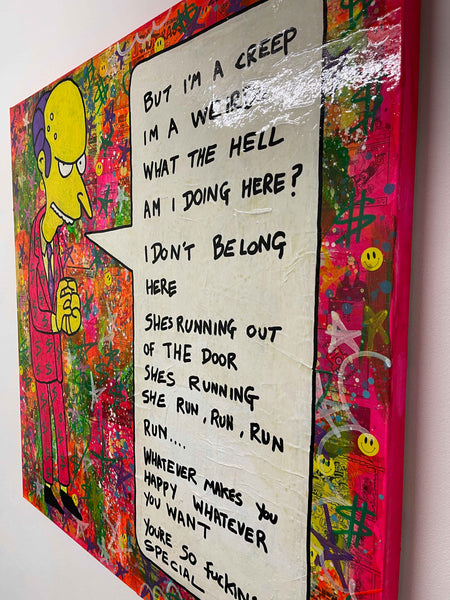 BUT I'M A CREEP
IM A WEIRDO
WHAT THE HELL
AM I DOING HERE?
I DON'T BELONG
HERE
SHES RUNNING OUT
OF THE DOOR
SHES RUNNING
SHE RUN, RUN, RUN
RUN....
WHATEVER MAKES YOU
HAPPY WHATEVER
YOU WANT
YOURE SO FUCKING
SPECIAL